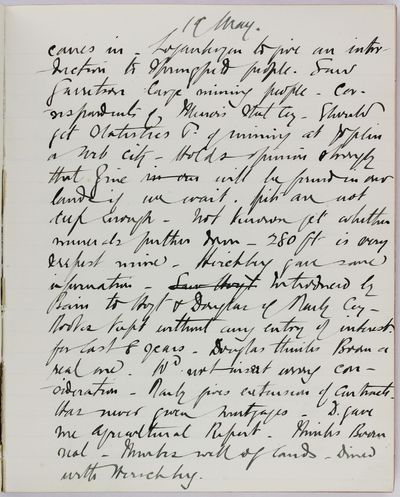 19 May.
comes in - Loganbergen to give an intro-
duction to Springfield people. Saw
Garretson large mining people - Cor-
respondents of Munroe Stutley. Should
get Statistics &c of mining at Joplin
a Web City - Holds opinion strongly
that Zinc will be found in our
lands if we wait. pits are not
deep enough - Not known yet whether
minerals further down - 280 ft is very
deepest mine - Herschley gave same
information - Introduced by
Bain to Hoyt & Douglas of Realty Coy -
Books kept without any entry of interest
for last 8 years - Douglas thinks Boom a
real one. Wd not insist every con-
sideration - Realty gives extension of Contracts
Has never given mortgages - D. gave
me Agricultural Report - Thinks Boom
real - Thinks well of lands - dined
with Herschley.